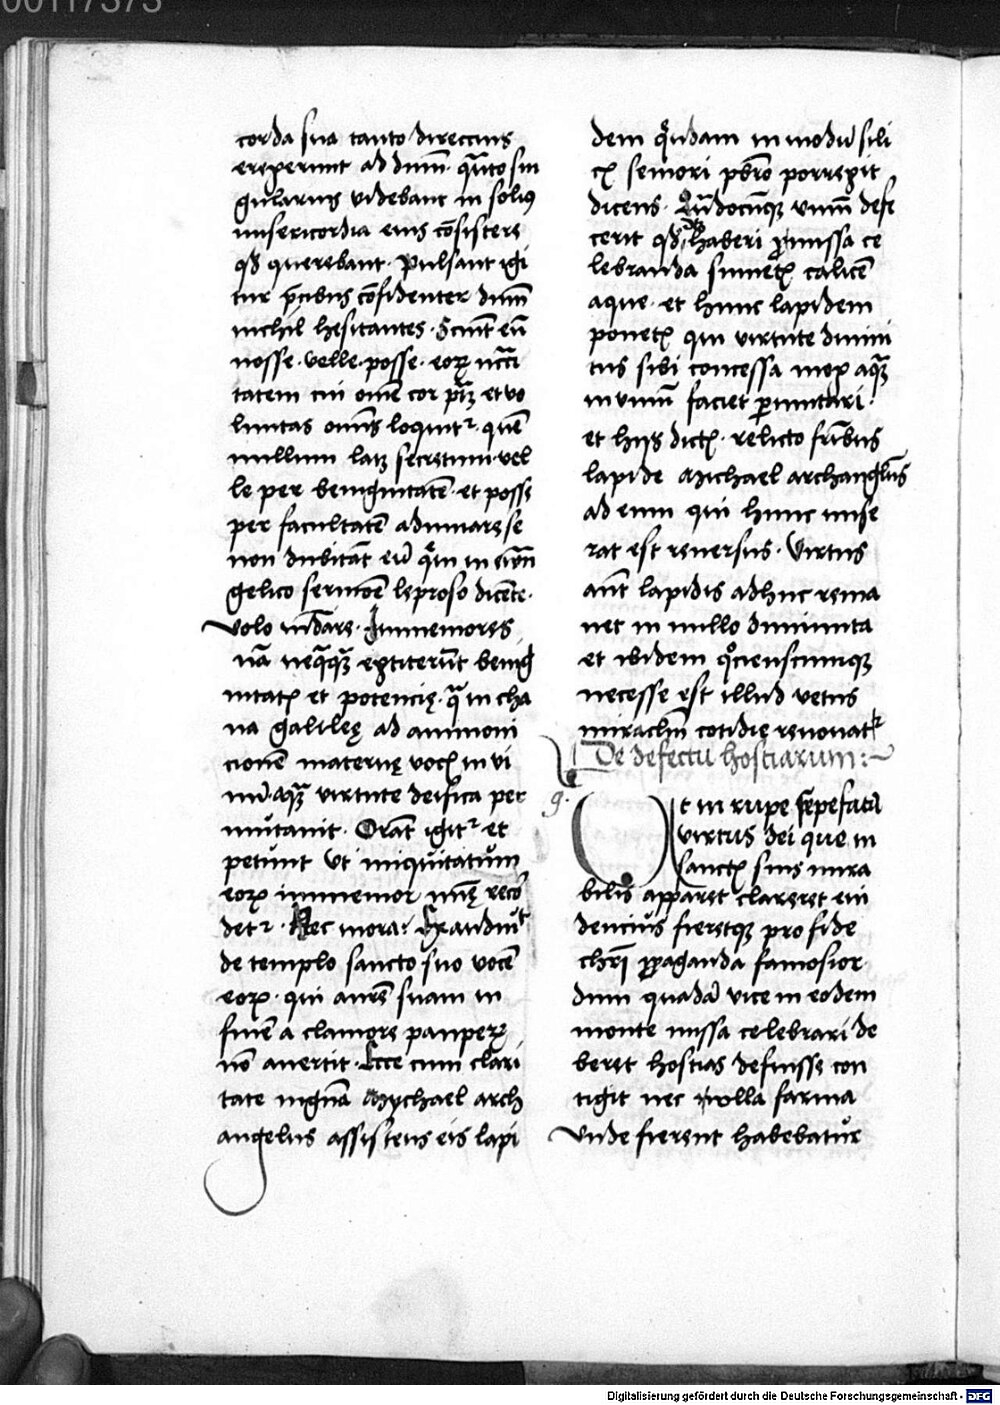 00117373
corda sua tanto direccius
erexerunt ad dnm̄. quāto sin
gularius videbant in solius
misericordia eius cōsistere
qd̄ querebant. Pulsant igi
tur p̄cibus cōfidenter dnm̄
nichil hesitantes. Sciūt eū
nosse. velle. posse. eoꝝ nccī
tatem cui om̄e cor ptꝫ et vo
luntas omīs loquitr. quē
nullum latꝫ secretum. vel
le per benignitatē. et posse
per facultatē adiuuare se
non dubitāt eū qui in ewn̄
gelico sermōe leproso dicēte.
volo mūdare. Inmemores
nā neqq̄ꝫ extiterūt benig
nitatꝭ et potencię. qua in cha
na galileę ad ammoni
cionē maternę vocꝭ in vi
nū aquā virtute deifica per
mutauit. Orāt igitr et
petunt vt iniquitatum
eoꝝ inmemor nūc recō
detr. Nec mora: Exaudiuit
de templo sancto suo vocē
eoꝝ. qui aurē suam in
finē a clamore pauperꝝ
nō auertit. Ecce cum clari
tate mgnā Mychael arch
angelus assistens eis lapi
dem quēdam in modū sili
cꝭ seniori pbrō porrexit
dicens. Qn̄documqꝫ vinū defe
cerit qd̄ haberi ꝓ missa ce
lebranda sumetꝭ calicē
aque. et hunc lapidem
ponetꝭ qui virtute diuini
tus sibi concessa mox aquā
in vinū faciet permutari.
et hijs dictꝭ. relicto fr̄ibus
lapide Michael archanglūs
ad eum qui hunc mise
rat est reuersus. Virtus
aūt lapidis adhuc rema
net in nullo diminuta
et ibidem quocienscumqꝫ
necesse est illud vetus
miraclm̄ cotidie renouatr
De defectu hostiarum:~
g.
Ut in rupe sepefata
virtus dei que in
sanctꝭ suis mira
bilis apparet clareret eui
dencius fieretqꝫ pro fide
chrī ꝓpaganda famosior
dum quadā vice in eodem
monte missa celebrari de
beret hostias defuisse con
tigit nec nulla farina
Vnde fierent habebatur
Digitalisierung gefördert durch die Deutsche Forschungsgemeinschaft - DFG